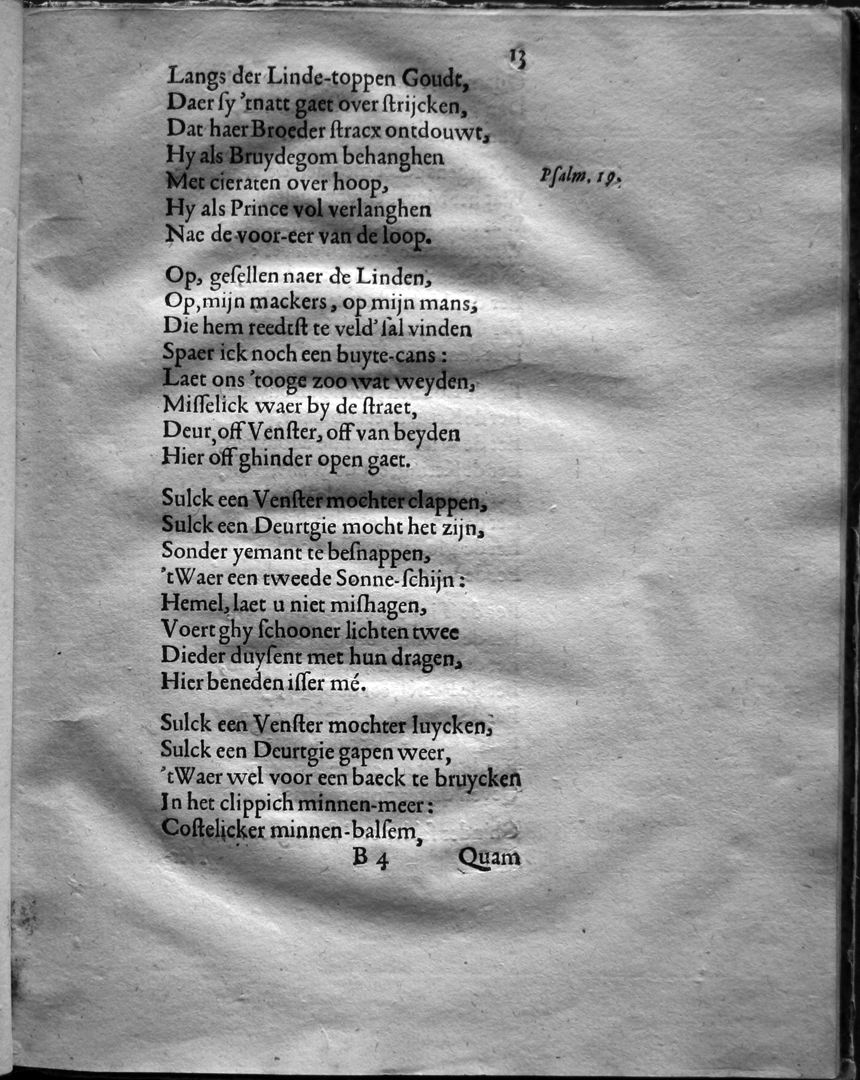 13
Langs der Linde-toppen Goudt,
Daer ſy 'tnatt gaet over ſtrijcken,
Dat haer Broeder ſtracx ontdouwt,
Hy als Bruydegom behanghen
Met cieraten over hoop,
Psalm. 19.
Hy als Prince vol verlanghen
Nae de voor-eer van de loop.
Op, geſellen naer de Linden,
Op, mijn mackers, op mijn mans,
Die hem reedtſt te veld' ſal vinden
Spaer ick noch een buyte-cans:
Laet ons 'tooge zoo wat weyden,
Miſſelick waer by de ſtraet,
Deur, off Venſter, off van beyden
Hier off ghinder open gaet.
Sulck een Venſter mochter clappen,
Sulck een Deurtgie mocht het zijn,
Sonder yemant te beſnappen,
'tWaer een tweede Sonne-ſchijn:
Hemel, laet u niet miſhagen,
Voert ghy ſchooner lichten twee
Dieder duyſent met hun dragen,
Hier beneden iſſer mé.
Sulck een Venſter mochter luycken,
Sulck een Deurtgie gapen weer,
'tWaer wel voor een baeck te bruycken
In het clippich minnen-meer:
Coſtelicker minnen-balſem,
B 4 Quam